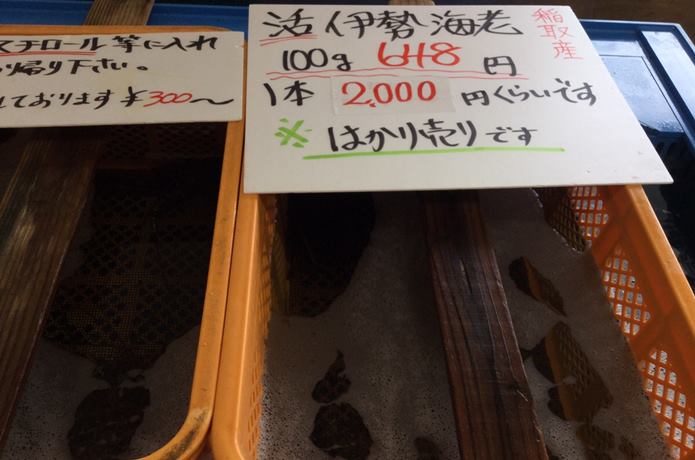 スチロール等に入れ
り帰り下さい。
ております¥300〜
活伊勢海老
稲取産
100g 648円
1本 2,000円くらいです
※はかり売りです